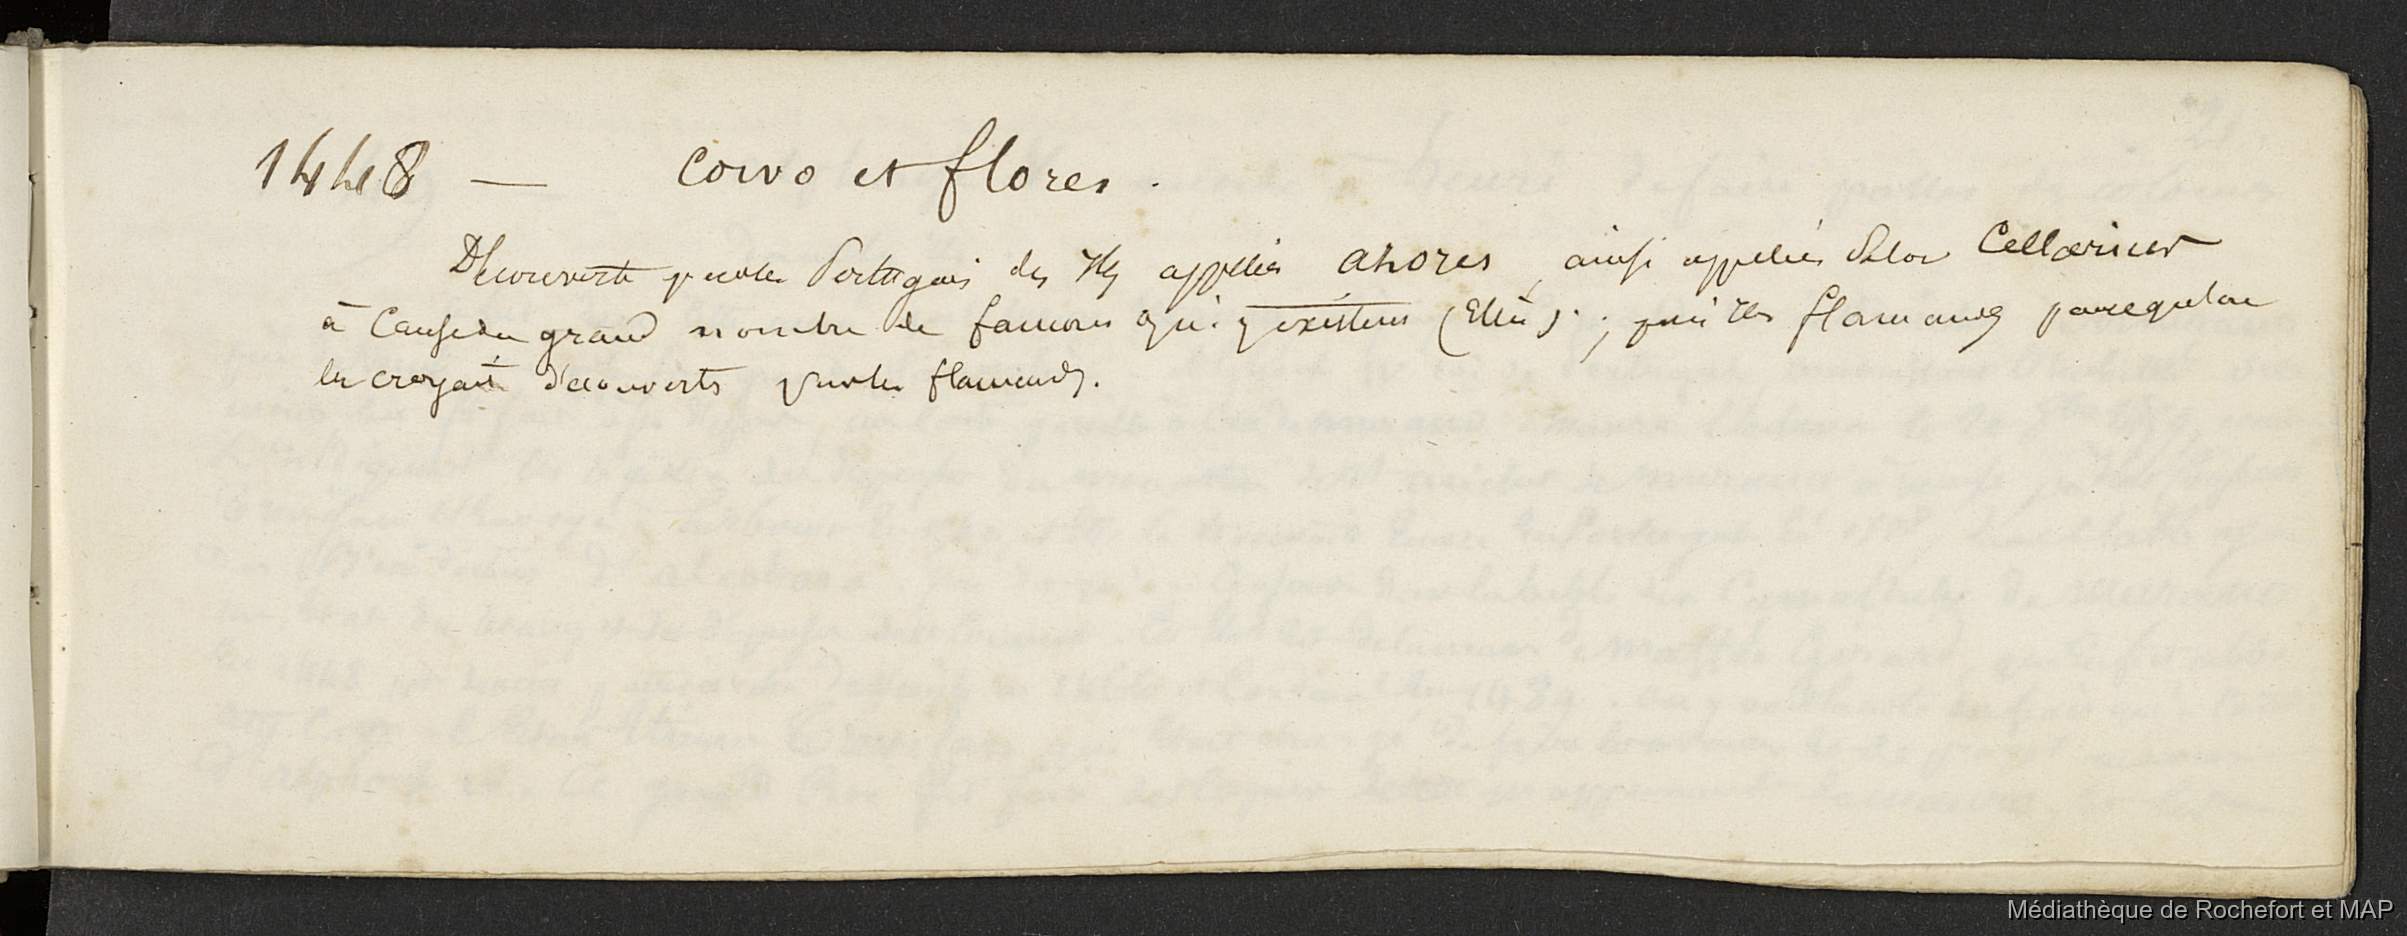 1448 — Corvo et flores.
Découverte par les Portugais des Iles appellées açores, ainsi appellées selon Cellarius
à cause du grand nombre de faucons qui y existent ( ) ; puis Iles flamandes parcequ'on
les croyait découverts par les flamands.
Médiathèque de Rochefort et MAP